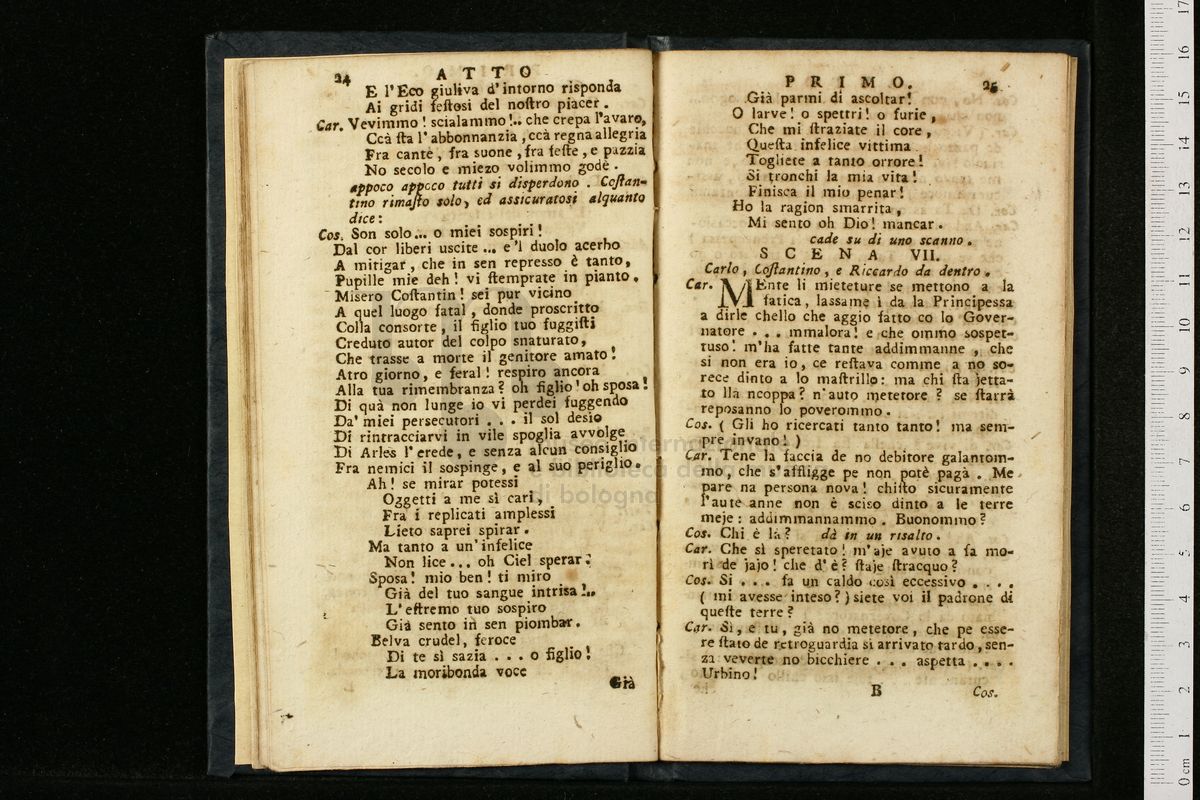 24 ATTO
E l'Eco giuliva d'intorno risponda
Ai gridi feſtosi del noſtro piacer.
Car. Vevimmo! scialammo!.. che crepa l'avaro,
Ccà ſta l'abbonnanzia, ccà regna allegria
Fra cante, fra suone, fra feſte, e pazzia
No secolo e miezo volimmo godè.
appoco appoco tutti si disperdono. Coſtan-
tino rimaſto solo, ed assicuratosi alquanto
dice:
Cos. Son solo... o miei sospiri!
Dal cor liberi uscite... e'l duolo acerbo
A mitigar, che in sen represso è tanto,
Pupille mie deh! vi ſtemprate in pianto.
Misero Coſtantin! sei pur vicino
A quel luogo fatal, donde proscritto
Colla consorte, il figlio tuo fuggiſti
Creduto autor del colpo snaturato,
Che trasse a morte il genitore amato!
Atro giorno, e feral! respiro ancora
Alla tua rimembranza? oh figlio! oh sposa!
Di quà non lunge io vi perdei fuggendo
Da' miei persecutori... il sol desio
Di rintracciarvi in vile spoglia avvolge
Di Arles l'erede, e senza alcun consiglio
Fra nemici il sospinge, e al suo periglio.
Ah! se mirar potessi
Oggetti a me sì cari,
Fra i replicati amplessi
Lieto saprei spirar.
Ma tanto a un'infelice
Non lice... oh Ciel sperar!
Sposa! mio ben! ti miro
Già del tuo sangue intrisa!..
L'eſtremo tuo sospiro
Già sento in sen piombar.
Belva crudel, feroce
Di te sì sazia... o figlio!
La moribonda voce
Già
PRIMO. 25
Già parmi di ascoltar!
O larve! o spettri! o furie,
Che mi ſtraziate il core,
Queſta infelice vittima
Togliete a tanto orrore!
Si tronchi la mia vita!
Finisca il mio penar!
Ho la ragion smarrita,
Mi sento oh Dio! mancar.
cade su di uno scanno.
SCENA VII.
Carlo, Coſtantino, e Riccardo da dentro.
Car. MEnte li mieteture se mettono a la
fatica, lassame ì da la Principessa
a dirle chello che aggio fatto co lo Gover-
natore... mmalora! e che ommo sospet-
tuso! m'ha fatte tante addimmanne, che
si non era io, ce reſtava comme a no so-
rece dinto a lo maſtrillo: ma chi ſta jetta-
to llà ncoppa? n'auto metetore? se ſtarrà
reposanno lo poverommo.
Cos. (Gli ho ricercati tanto tanto! ma sem-
pre invano!)
Car. Tene la faccia de no debitore galantom-
mo, che s'affligge pe non potè pagà. Me
pare na persona nova! chiſto sicuramente
l'aute anne non è sciso dinto a le terre
meje: addimmannammo. Buonommo?
Cos. Chi è là? dà in un risalto.
Car. Che sì speretato! m'aje avuto a fa mo-
rì de jajo! che d'è? ſtaje ſtracquo?
Cos. Si... fa un caldo così eccessivo....
(mi avesse inteso?) siete voi il padrone di
queſte terre?
Car. Sì, e tu, già no metetore, che pe esse-
re ſtato de retroguardia si arrivato tardo, sen-
za veverte no bicchiere... aspetta....
Urbino!
B Cos.